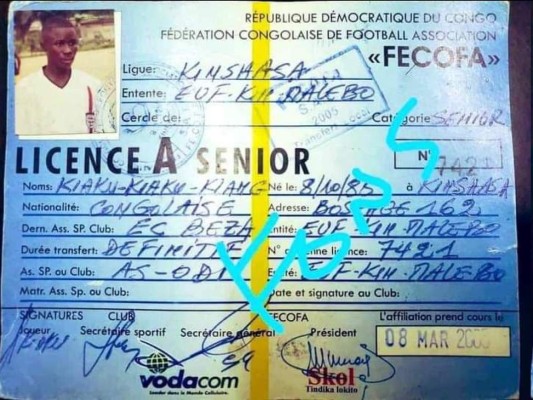 RÉPUBLIQUE DÉMOCRATIQUE DU CONGO
FÉDÉRATION CONGOLAISE DE FOOTBALL ASSOCIATION
«FECOFA»
Ligue: KINSHASA
Entente: EUF-KIN-MALEBO
Cercle de: Catégorie SENIOR
LICENCE A SENIOR N° 7421
Noms: KIAKU-KIAKU-KIANG Né le: 8/10/85 à KINSHASA
Nationalité: CONGOLAISE Adresse:
Dern. Ass. SP. Club: ES BEZA Entité: EUF-KIN-MALEBO
Durée transfert: DEFINITIF N° licence 7421
As. SP. ou Club: AS- EUF-KIN-MALEBO
Matr. Ass. Sp. ou Club: Date et signature au Club:
SIGNATURES CLUB FECOFA L'affiliation prend cours le
Joueur Secrétaire sportif Secrétaire général Président
08 MAR
vodacom
Leader dans le Monde Cellulaire.
Skol
Tindika lokito